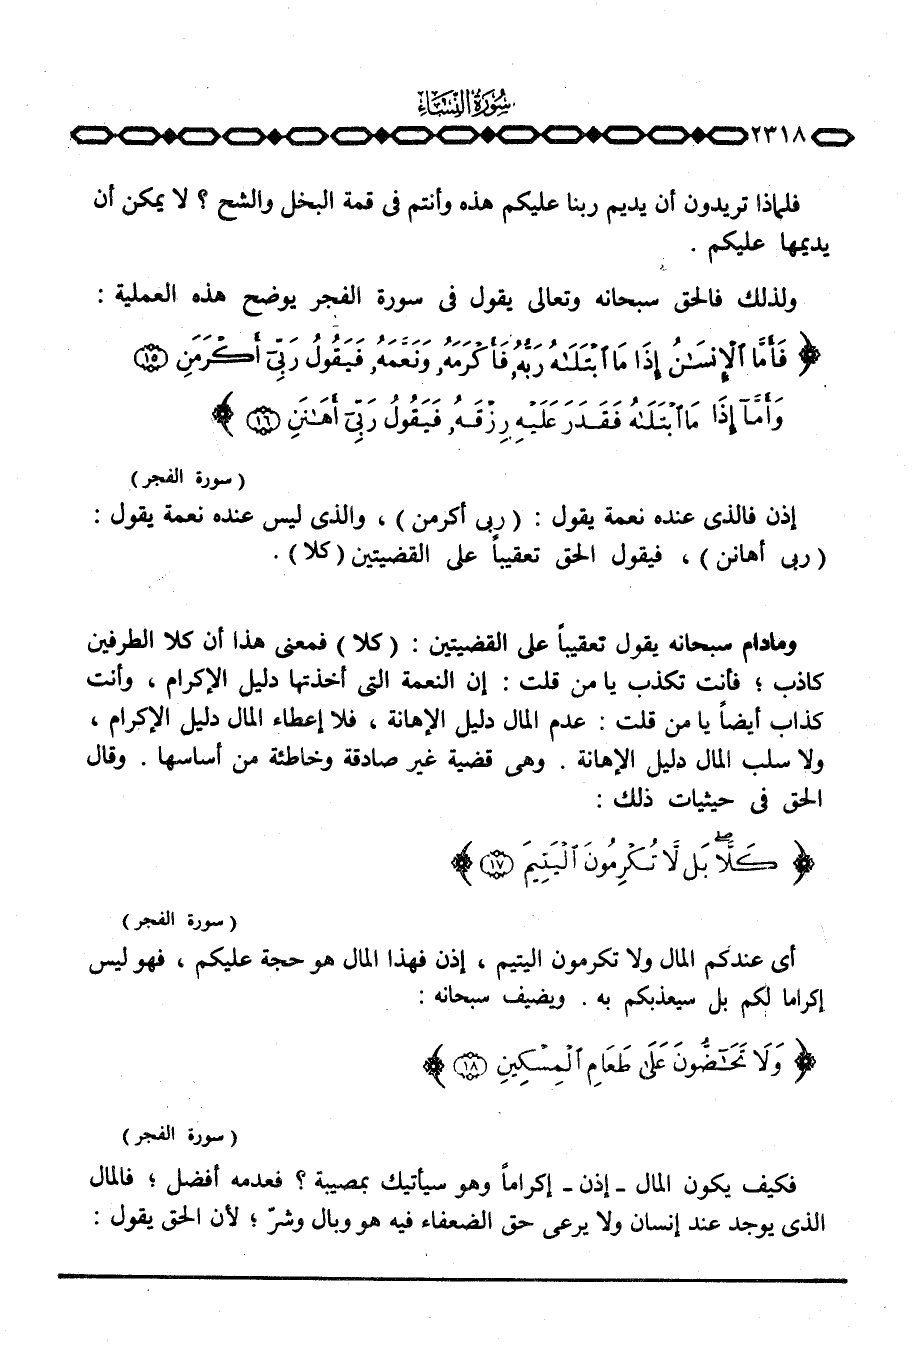 سورة النساء
٢٣١٨
فلماذا تريدون أن يديم ربنا عليكم هذه وأنتم فى قمة البخل والشح ؟ لا يمكن أن
يديمها عليكم .
ولذلك فالحق سبحانه وتعالى يقول فى سورة الفجر يوضح هذه العملية :
﴿ فَأَمَّا ٱلْإِنسَٰنُ إِذَا مَا ٱبْتَلَىٰهُ رَبُّهُۥ فَأَكْرَمَهُۥ وَنَعَّمَهُۥ فَيَقُولُ رَبِّىٓ أَكْرَمَنِ ١٥
وَأَمَّآ إِذَا مَا ٱبْتَلَىٰهُ فَقَدَرَ عَلَيْهِ رِزْقَهُۥ فَيَقُولُ رَبِّىٓ أَهَٰنَنِ ١٦ ﴾
( سورة الفجر )
إذن فالذى عنده نعمة يقول : ( ربى أكرمن ) ، والذى ليس عنده نعمة يقول :
( ربى أهانن ) ، فيقول الحق تعقيباً على القضيتين ( كلا ) .
ومادام سبحانه يقول تعقيباً على القضيتين : ( كلا ) فمعنى هذا أن كلا الطرفين
كاذب ؛ فأنت تكذب يا من قلت : إن النعمة التى أخذتها دليل الإكرام ، وأنت
كذاب أيضاً يا من قلت : عدم المال دليل الإهانة ، فلا إعطاء المال دليل الإكرام ،
ولا سلب المال دليل الإهانة . وهى قضية غير صادقة وخاطئة من أساسها . وقال
الحق فى حيثيات ذلك :
﴿ كَلَّا ۖ بَل لَّا تُكْرِمُونَ ٱلْيَتِيمَ ١٧ ﴾
( سورة الفجر )
أى عندكم المال ولا تكرمون اليتيم ، إذن فهذا المال هو حجة عليكم ، فهو ليس
إكراما لكم بل سيعذبكم به . ويضيف سبحانه :
﴿ وَلَا تَحَٰٓضُّونَ عَلَىٰ طَعَامِ ٱلْمِسْكِينِ ١٨ ﴾
( سورة الفجر )
فكيف يكون المال ـ إذن ـ إكراماً وهو سيأتيك بمصيبة ؟ فعدمه أفضل ؛ فالمال
الذى يوجد عند إنسان ولا يرعى حق الضعفاء فيه هو وبال وشرّ ؛ لأن الحق يقول :